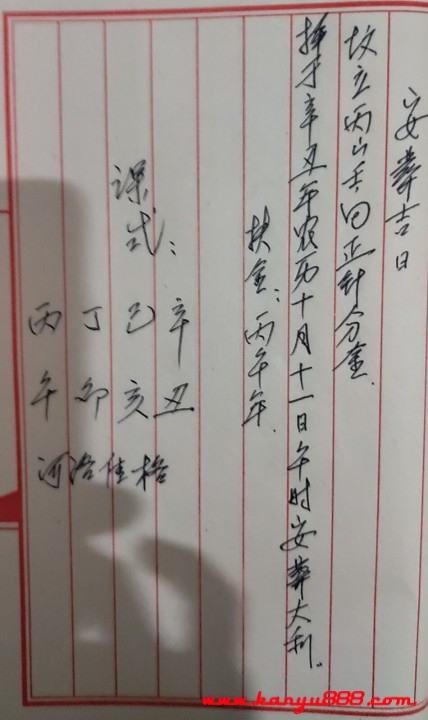 安葬吉日
坟立丙山壬向正针分金.
择于辛丑年农历十月十一日午时安葬大利.
扶金:丙午年.
课式:
辛丑
己亥
丁卯
丙午
河洛佳格
www.kanyu888.com